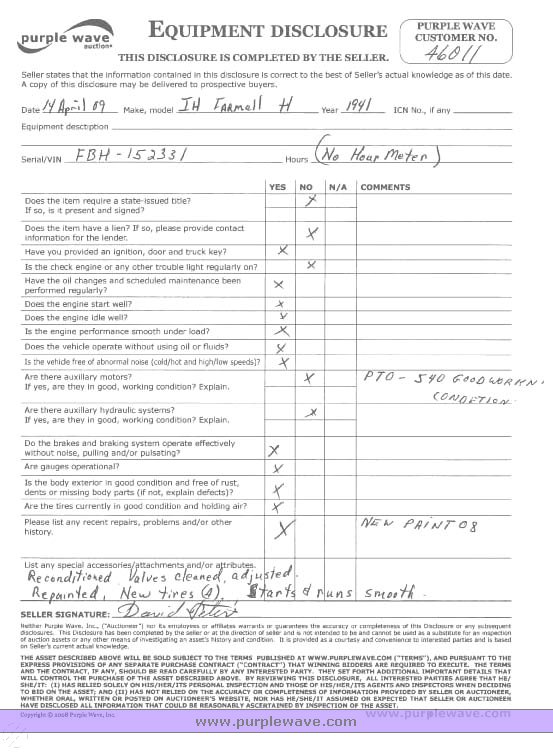 purple wave
auction
EQUIPMENT DISCLOSURE
THIS DISCLOSURE IS COMPLETED BY THE SELLER.
PURPLE WAVE
CUSTOMER NO.
46011
Seller states that the information contained in this disclosure is correct to the best of Seller's actual knowledge as of this date.
A copy of this disclosure may be delivered to prospective buyers.
Date 14 April 09 Make, model IH Farmall H Year 1941 ICN No., if any
Equipment description
Serial/VIN FBH-152331 Hours (No Hour Meter)
YES NO N/A COMMENTS
Does the item require a state-issued title? X
If so, is it present and signed?
Does the item have a lien? If so, please provide contact X
information for the lender.
Have you provided an ignition, door and truck key? X
Is the check engine or any other trouble light regularly on? X
Have the oil changes and scheduled maintenance been X
performed regularly?
Does the engine start well? X
Does the engine idle well? X
Is the engine performance smooth under load? X
Does the vehicle operate without using oil or fluids? X
Is the vehicle free of abnormal noise (cold/hot and high/low speeds)? X
Are there auxiliary motors? X PTO - 540 GOOD WORKN
If yes, are they in good, working condition? Explain. CONDETION.
Are there auxiliary hydraulic systems? X
If yes, are they in good, working condition? Explain.
Do the brakes and braking system operate effectively X
without noise, pulling and/or pulsating?
Are gauges operational? X
Is the body exterior in good condition and free of rust, X
dents or missing body parts (if not, explain defects)?
Are the tires currently in good condition and holding air? X
Please list any recent repairs, problems and/or other X NEW PAINT 08
history.
List any special accessories/attachments and/or attributes.
Reconditioned Valves cleaned, adjusted.
Repainted, New tires (4). Starts & runs smooth.
SELLER SIGNATURE: David
Neither Purple Wave, Inc., ("Auctioneer") nor its employees or affiliates warrants or guarantees the accuracy or completeness of this Disclosure or any subsequent
disclosures. This Disclosure has been completed by the seller or at the direction of seller and is not intended to be and cannot be used as a substitute for an inspection
of auction assets or any other means of investigating an asset's history and condition. It is provided as a courtesy and convenience to interested parties and is based
on Seller's current actual knowledge.
THE ASSET DESCRIBED ABOVE WILL BE SOLD SUBJECT TO THE TERMS PUBLISHED AT WWW.PURPLEWAVE.COM ("TERMS"), AND PURSUANT TO THE
EXPRESS PROVISIONS OF ANY SEPARATE PURCHASE CONTRACT ("CONTRACT") THAT WINNING BIDDERS ARE REQUIRED TO EXECUTE. THE TERMS
AND THE CONTRACT, IF ANY, SHOULD BE READ CAREFULLY BY ANY INTERESTED PARTY. THEY SET FORTH ADDITIONAL IMPORTANT DETAILS THAT
WILL CONTROL THE PURCHASE OF THE ASSET DESCRIBED ABOVE. BY REVIEWING THIS DISCLOSURE, ALL INTERESTED PARTIES AGREE THAT HE/
SHE/IT: (I) HAS RELIED SOLELY ON HIS/HER/ITS PERSONAL INSPECTION AND THOSE OF HIS/HER/ITS AGENTS AND INSPECTORS WHEN DECIDING
TO BID ON THE ASSET; AND (II) HAS NOT RELIED ON THE ACCURACY OR COMPLETENESS OF INFORMATION PROVIDED BY SELLER OR AUCTIONEER,
WHETHER ORAL, WRITTEN OR POSTED ON AUCTIONEER'S WEBSITE, NOR HAS HE/SHE/IT ASSUMED OR EXPECTED THAT SELLER OR AUCTIONEER
HAVE DISCLOSED ALL INFORMATION THAT COULD BE REASONABLY ASCERTAINED BY INSPECTION OF THE ASSET.
Copyright © 2008 Purple Wave, Inc.
www.purplewave.com
www.purplewave.com